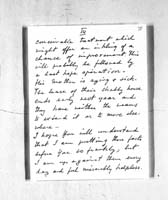 IV
conceivable treatment which
might offer an inkling of a
chance of improvement. This
will probably be followed by
a last hope operation.
His mother is aging & sick.
The lease of their shabby house
ends early next year and
they have neither the means
to extend it or to move else-
where.
I hope you will understand
that I am putting these facts
before you so frankly, but
I am up against them every
day and feel miserably helpless.